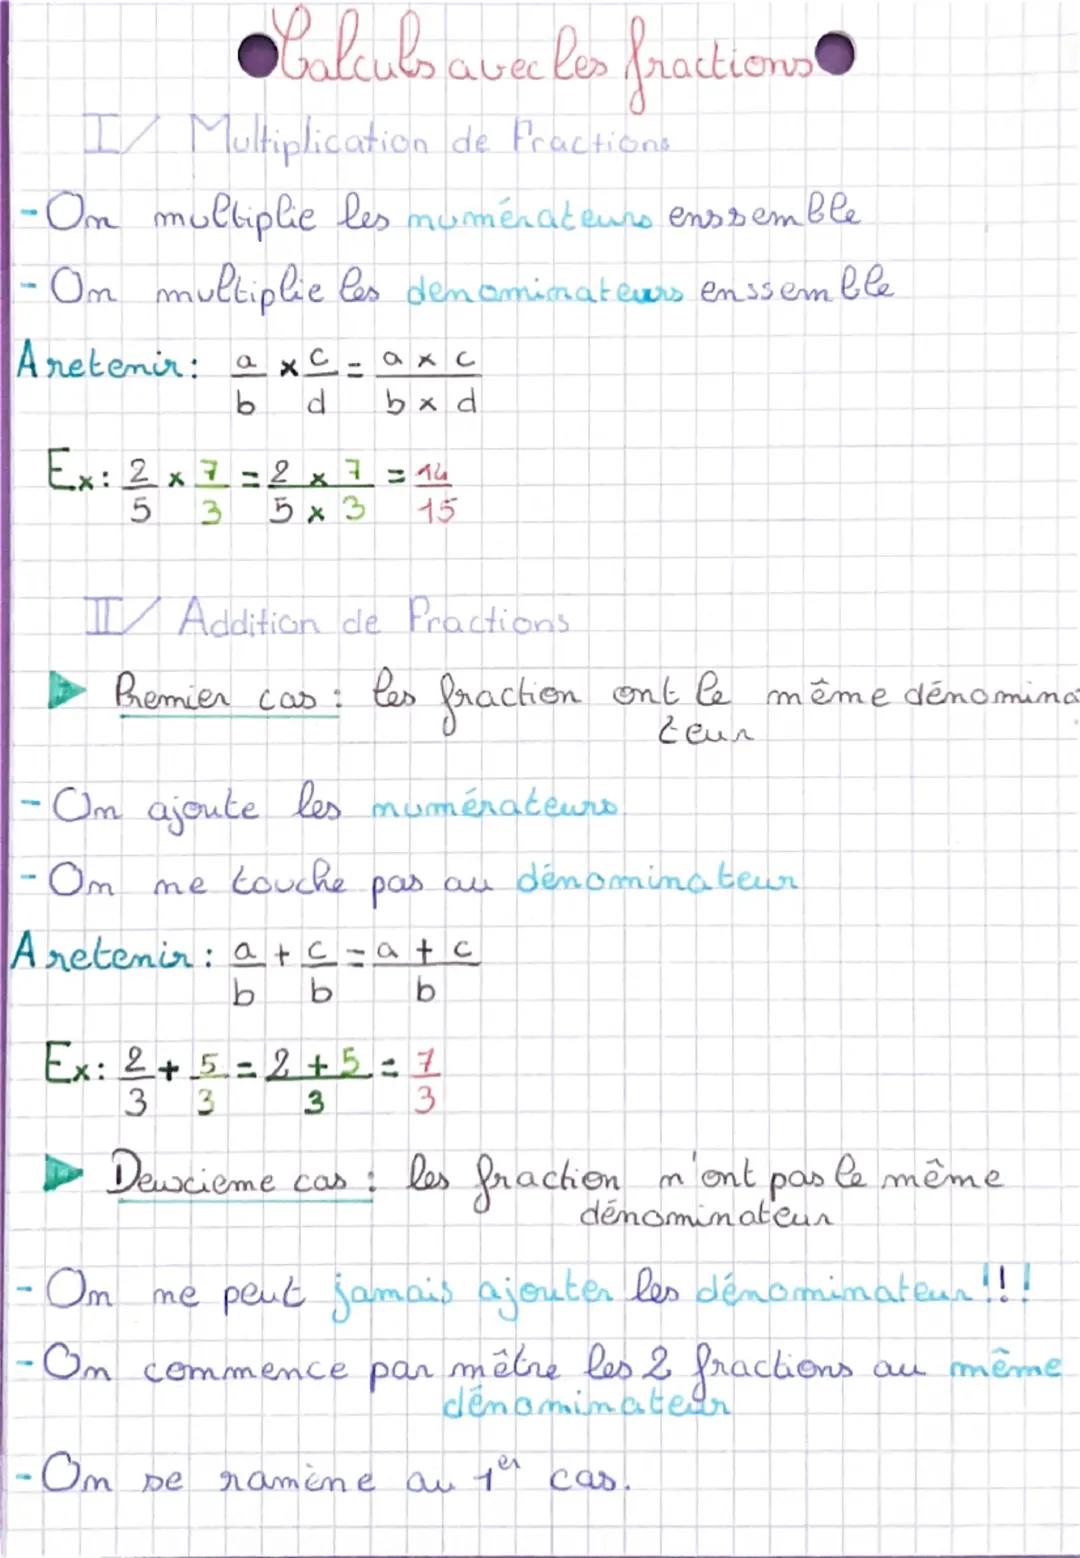 Calculs avec les fractions
I/ Multiplication de Fractions
- On multiplie les numérateurs enssemble
- On multiplie les denominateurs enssemble
A retenir : a/b × c/d = a × c / b × d
Ex : 2/5 × 7/3 = 2 × 7 / 5 × 3 = 14/15
II/ Addition de Fractions
Premier cas : les fraction ont le même dénomina
teur
- On ajoute les numérateurs
- On ne touche pas au dénominateur
A retenir : a/b + c/b = a + c / b
Ex : 2/3 + 5/3 = 2 + 5 / 3 = 7/3
Deuxcieme cas : les fraction n'ont pas le même
dénominateur
- On ne peut jamais ajouter les dénominateur !!!
- On commence par mêtre les 2 fractions au même
dénominateur
- On se ramène au 1er cas.